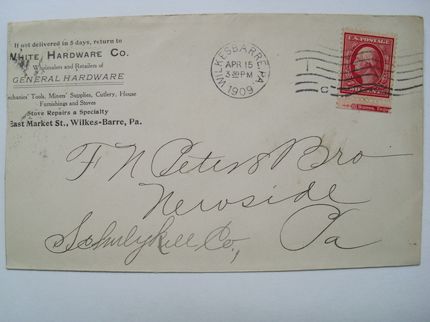 If not delivered in 5 days, return to
White Hardware Co.
Wholesalers and Retailers of
GENERAL HARDWARE
Mechanics' Tools, Miners' Supplies, Cutlery, House
Furnishings and Stoves
Stove Repairs a Specialty
East Market St., Wilkes-Barre, Pa.
WILKES-BARRE, PA.
APR 15
3-30 PM
1909
U.S. POSTAGE
F N Peters & Bro
Newside
Schuylkill Co.,
Pa